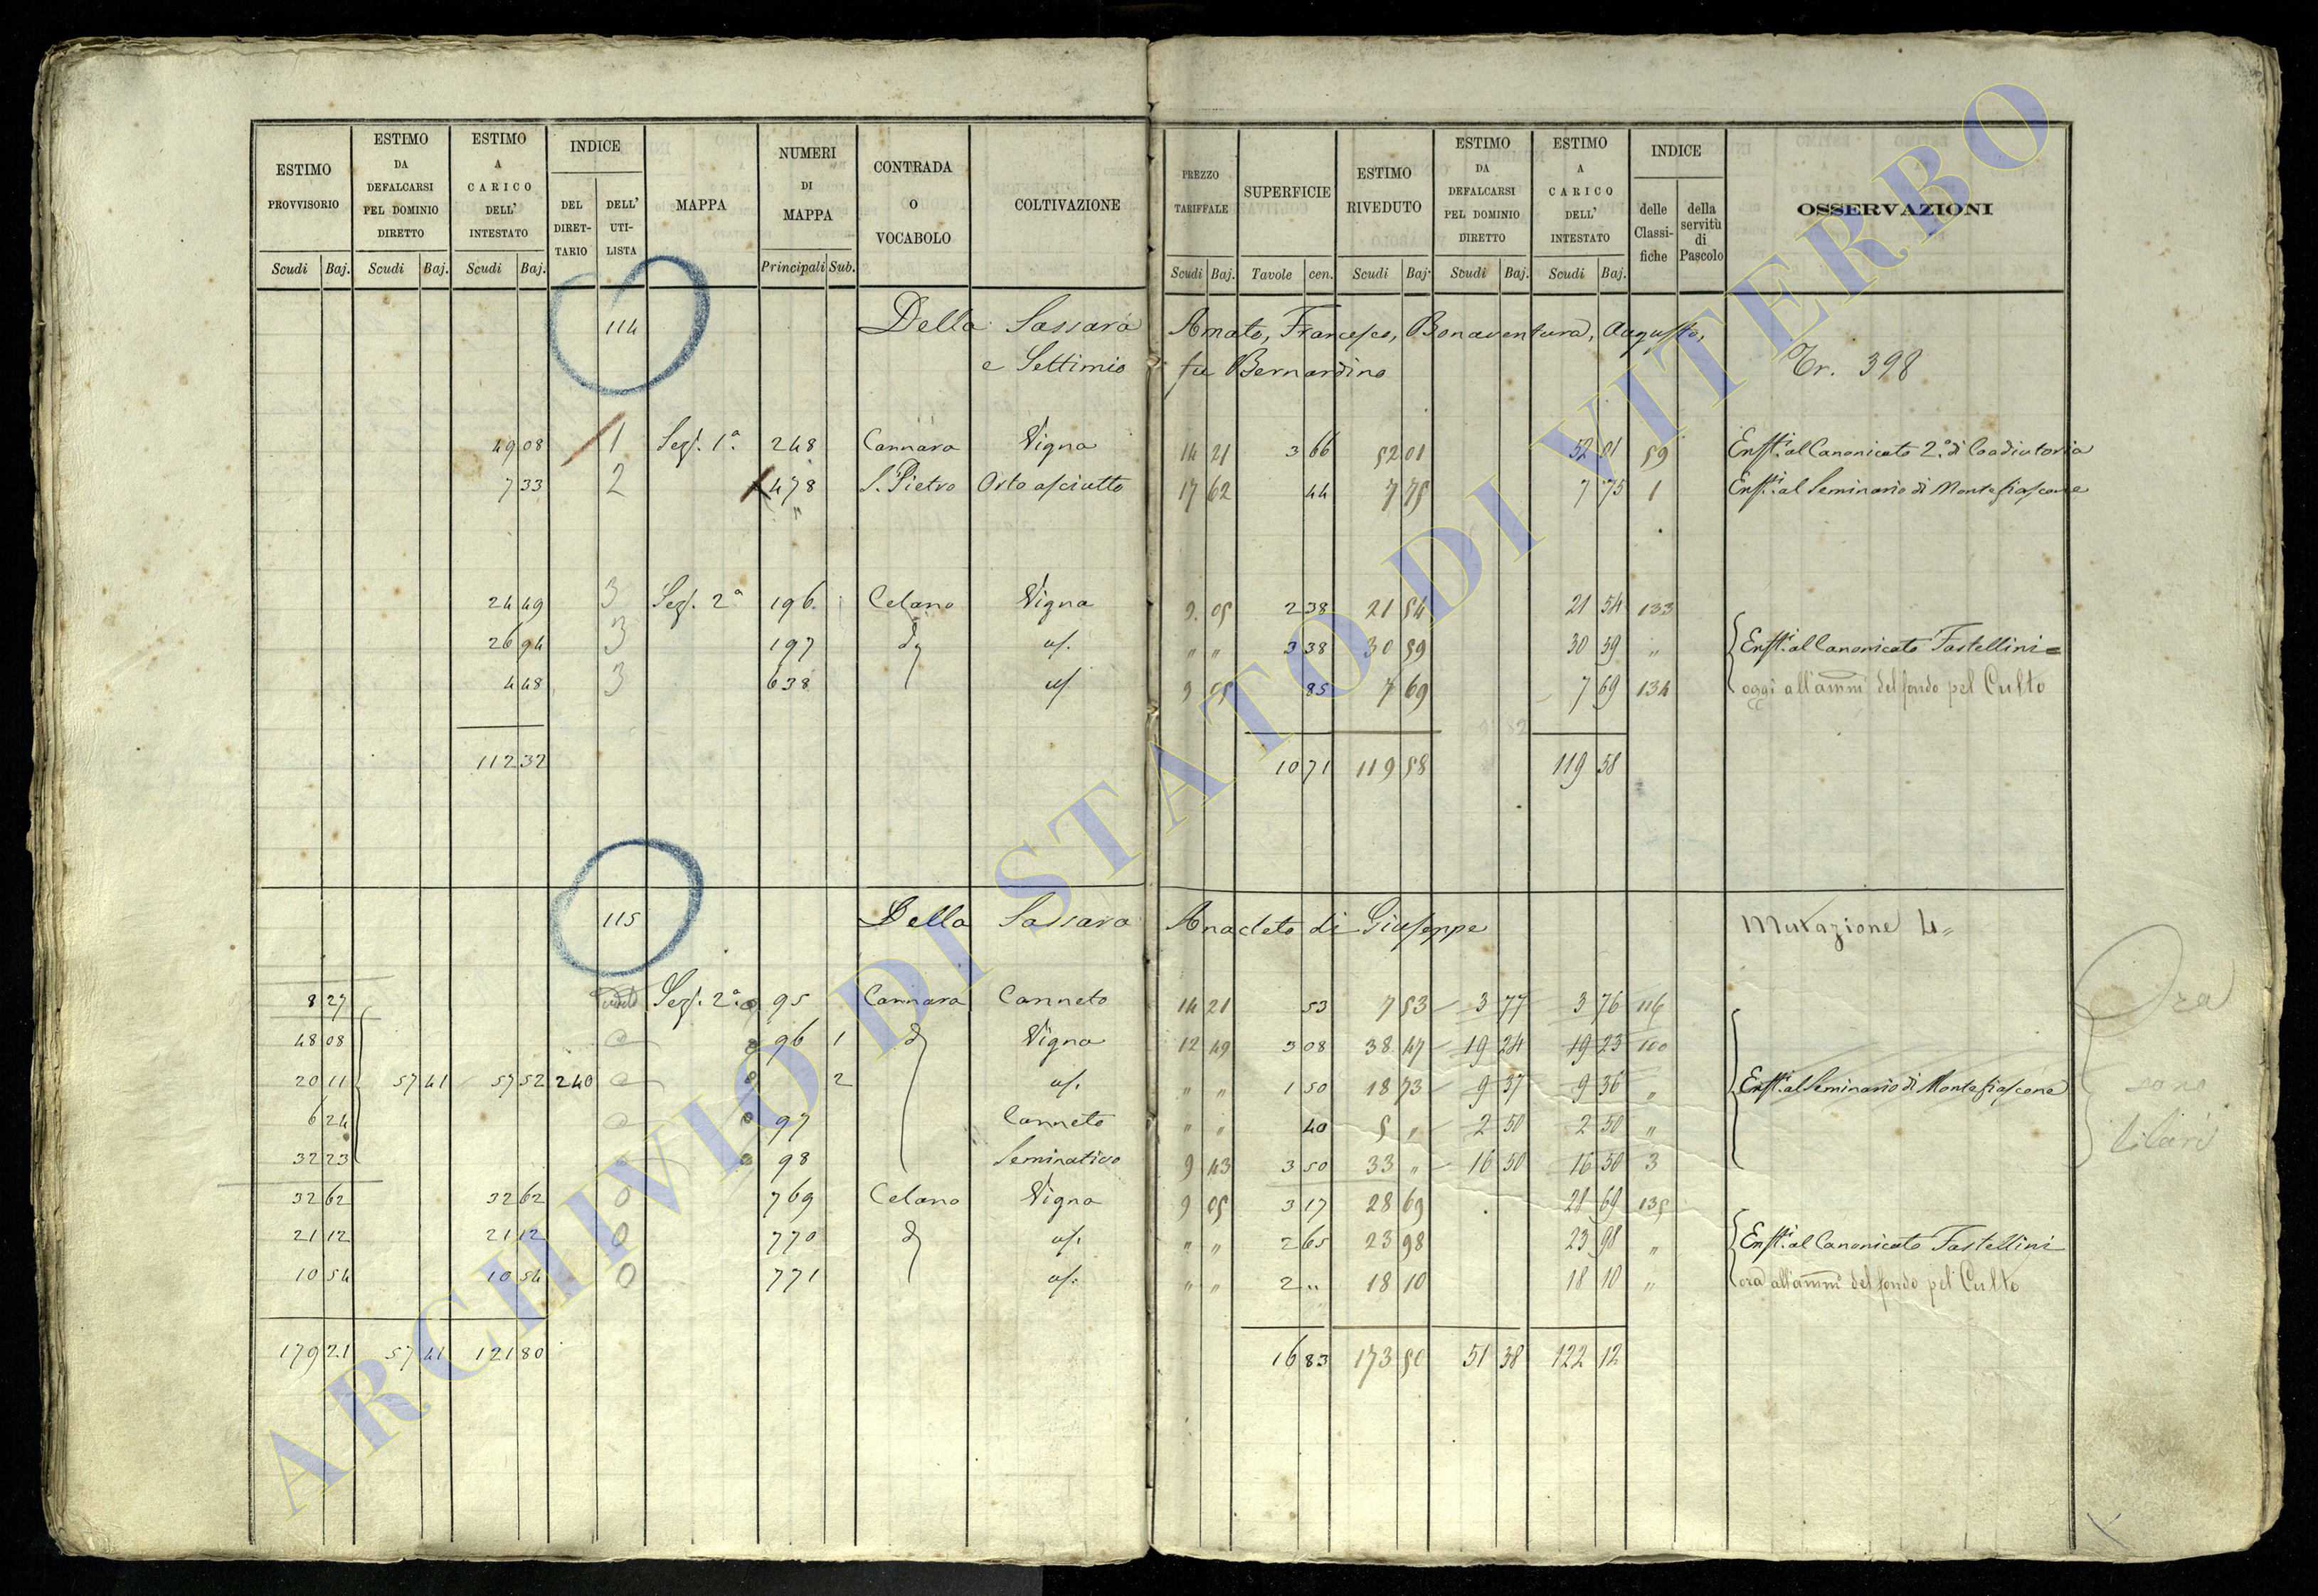 ESTIMO PROVVISORIO | ESTIMO DA DEFALCARSI PEL DOMINIO DIRETTO | ESTIMO A CARICO DELL' INTESTATO | INDICE DEL DIRET-TARIO | DELL' UTI-LISTA | MAPPA | NUMERI DI MAPPA | CONTRADA O VOCABOLO | COLTIVAZIONE | PREZZO TARIFFALE | SUPERFICIE | ESTIMO RIVEDUTO | ESTIMO DA DEFALCARSI PEL DOMINIO DIRETTO | ESTIMO A CARICO DELL' INTESTATO | INDICE delle Classi-fiche | della servitù di Pascolo | OSSERVAZIONI
Scudi Baj. Scudi Baj. Scudi Baj. Principali Sub. Scudi Baj. Tavole cen. Scudi Baj. Scudi Baj. Scudi Baj.
114 Della Sassara Amato, Francesco, Bonaventura, Augusto,
e Settimio fu Bernardino Tr. 398
49 08 1 Sez. 1ª 248 Cannara Vigna 14 21 3 66 52 01 52 01 59 Enfti. al Canonicato 2.º di Coadiutoria
7 33 2 478 S. Pietro Orto asciutto 17 62 44 7 75 7 75 1 Enfti. al Seminario di Montefiascone
"
24 49 3 Sez. 2ª 196 Celano Vigna 9. 05 2 38 21 54 21 54 133
26 94 3 197 dº us. " " 3 38 30 59 30 59 " Enfti. al Canonicato Fastellini =
4 48 3 638 us. 9 05 85 7 69 7 69 134 oggi all'ammi del fondo pel Culto
112 32 10 71 119 58 119 58
115 Della Sassara Anacleto di Giuseppe Mutazione 4=
8 27 Sez. 2ª 95 Cannara Canneto 14 21 53 7 53 3 77 3 76 116 Ora
48 08 96 1 dº Vigna 12 49 3 08 38 47 19 24 19 23 100
20 11 57 41 57 52 240 2 us. " " 1 50 18 73 9 37 9 36 " Enfti. al Seminario di Montefiascone sono
6 24 97 Canneto " " 40 5 " 2 50 2 50 "
32 23 98 Seminativo 9 43 3 50 33 " 16 50 16 50 3
32 62 32 62 0 769 Celano Vigna 9 05 3 17 28 69 28 69 135
21 12 21 12 0 770 dº us. " " 2 65 23 98 23 98 " Enfti. al Canonicato Fastellini
10 54 10 54 0 771 us. " " 2 " 18 10 18 10 " ora all'ammi del fondo pel Culto
179 21 57 41 121 80 16 83 173 50 51 38 122 12
ARCHIVIO DI STATO DI VITERBO